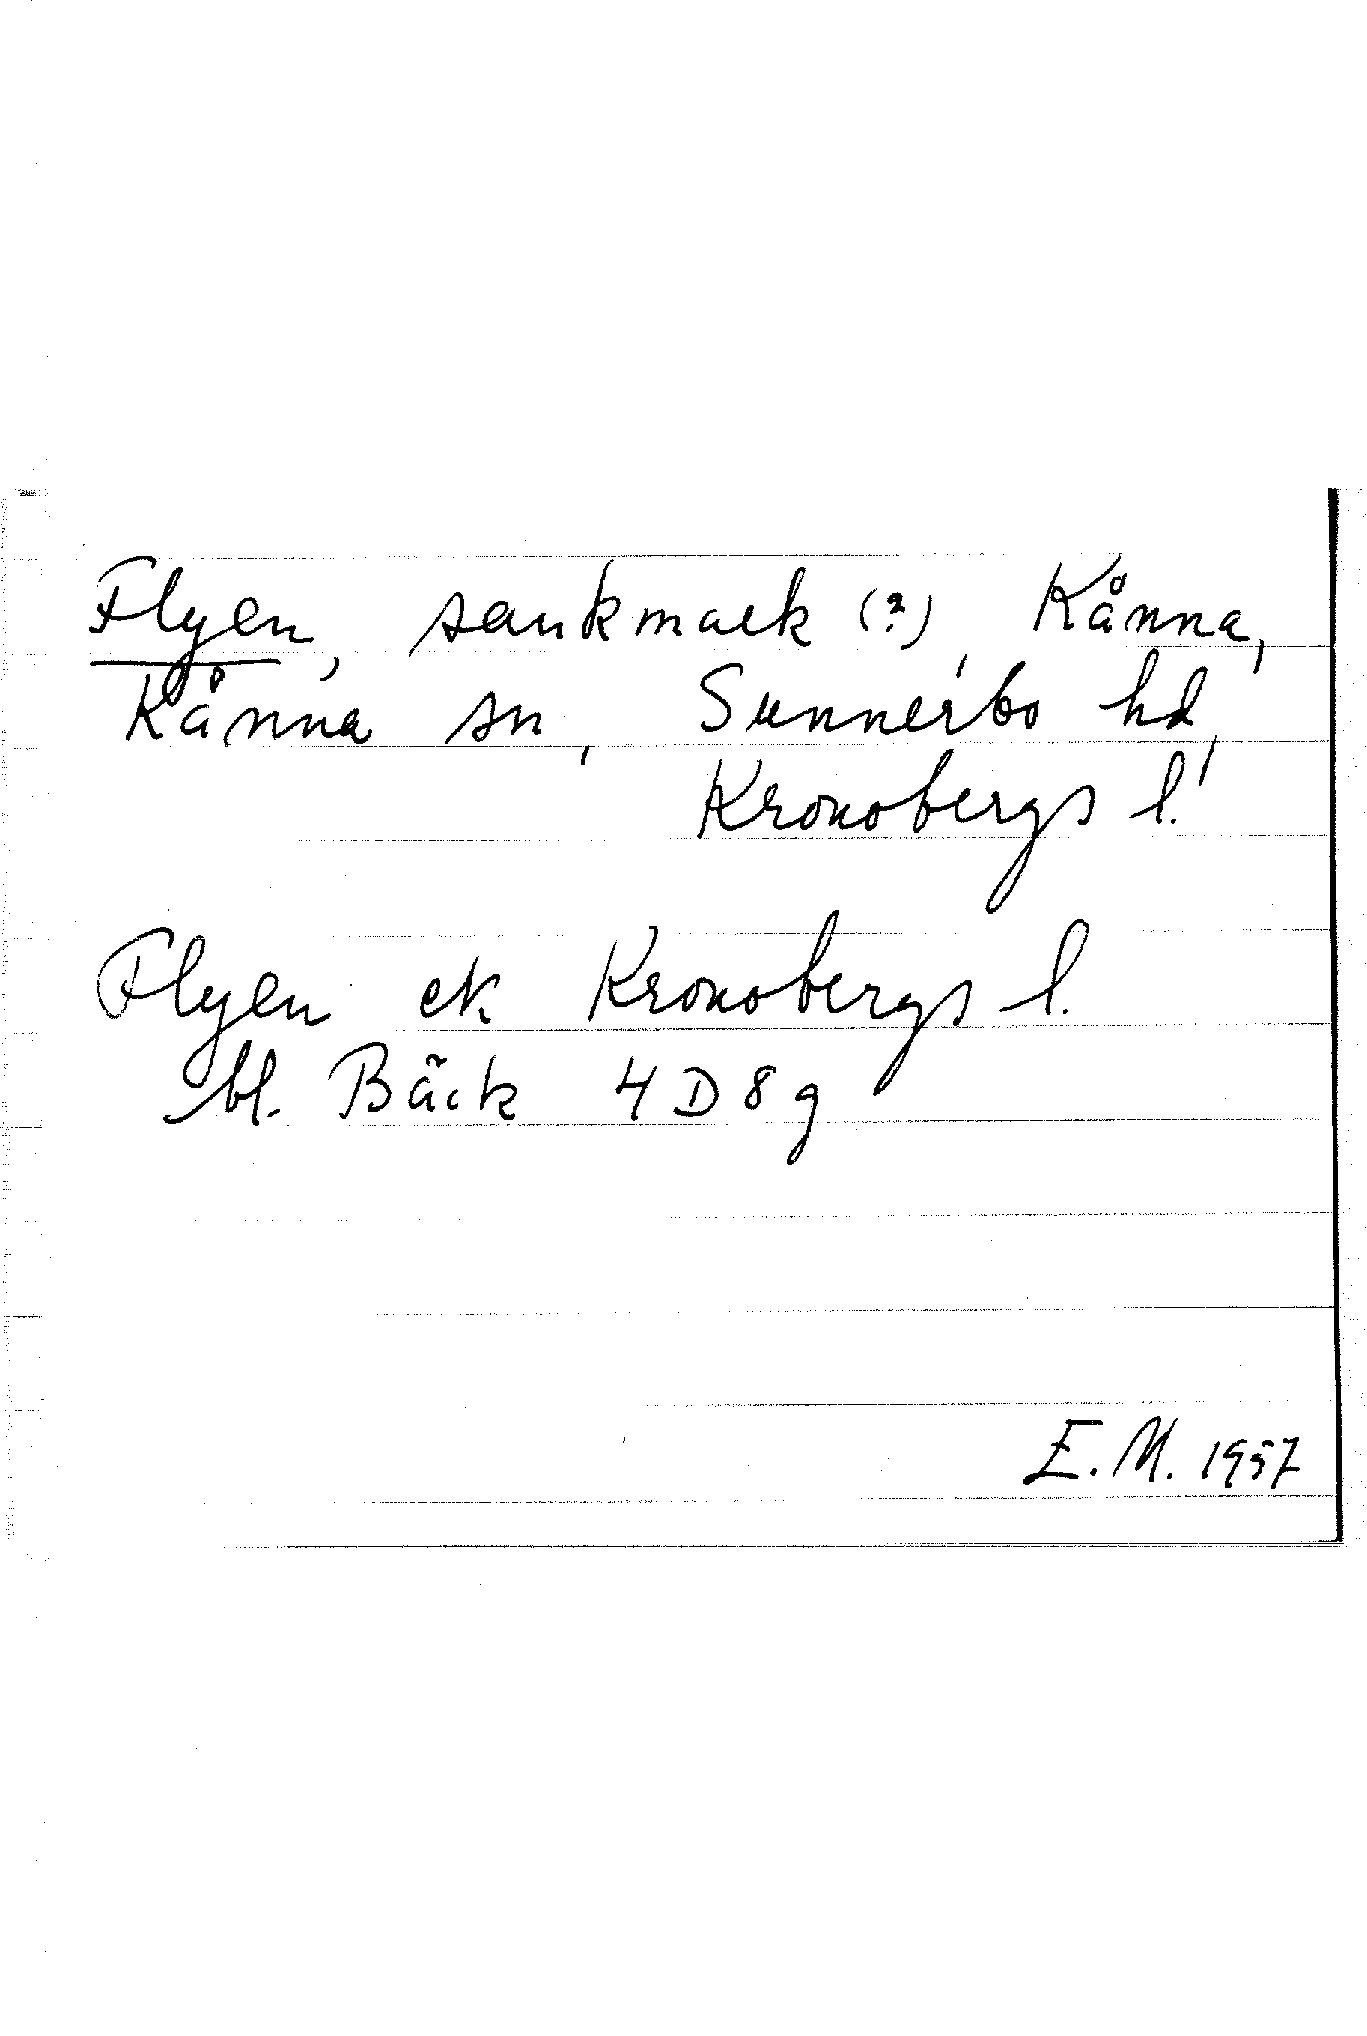 Flyen, sankmark (?), Kånna,
Kånna sn, Sunnerbo hd,
Kronobergs l.
Flyen ek Kronobergs l.
bl. Bäck 4D8g
E.M. 1957